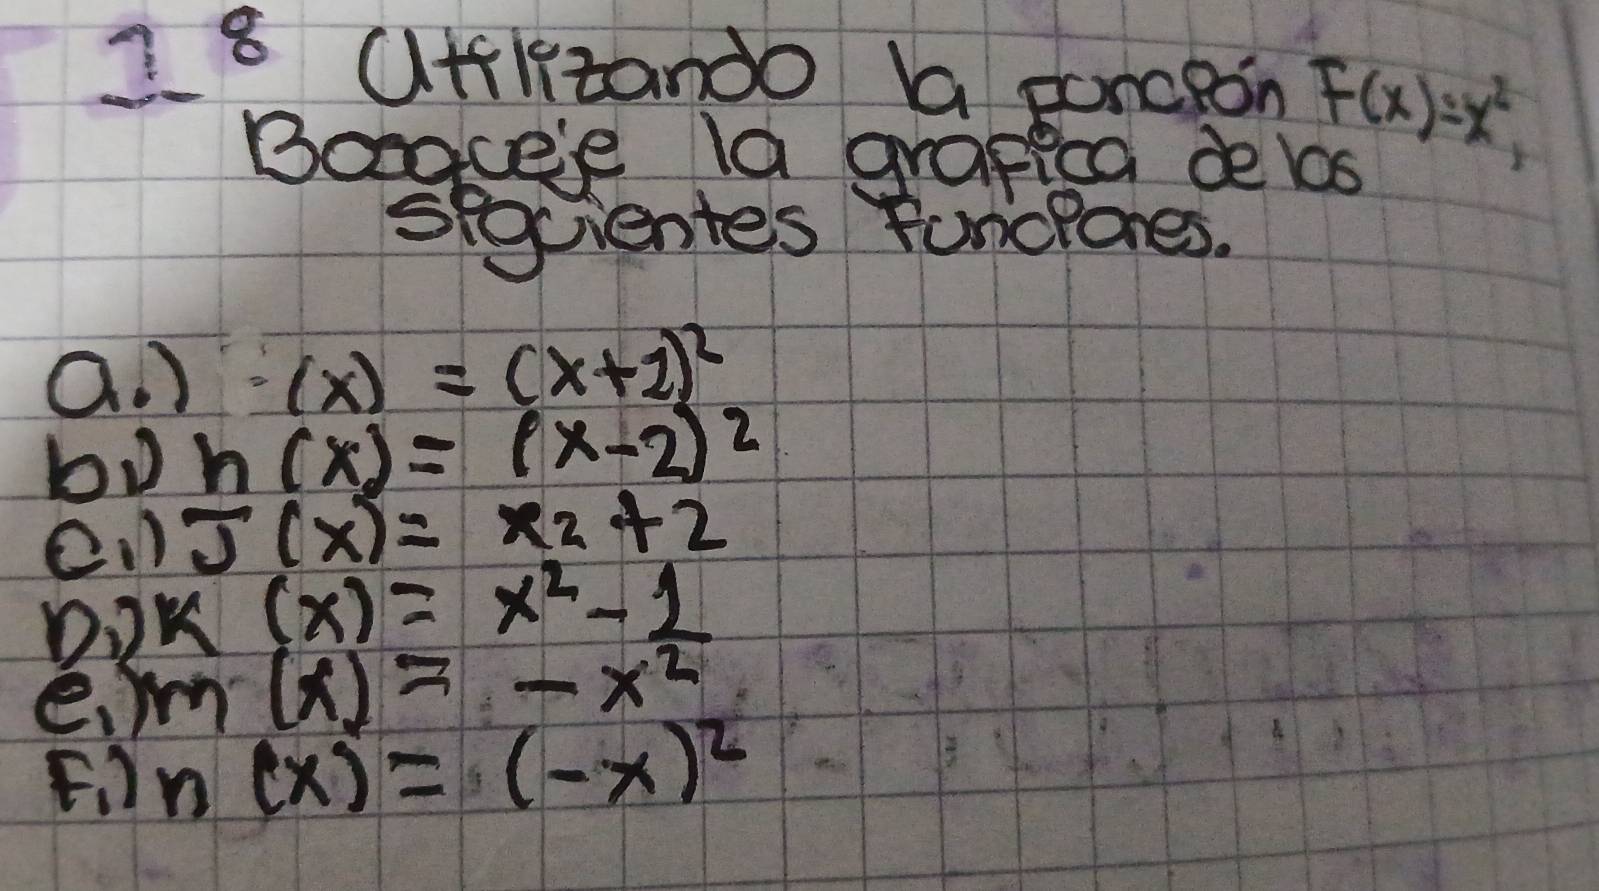 1 8 Utilizando la función F(x)=x²,
Bosqueje la grafica de las
siguientes funciones.
a.) (x) = (x+1)²
b.) h (x) = (x-2)²
c.) J (x) = x2 +2
D.) K (x) = x² - 1
e.) m (x) = - x²
F.) n (x) = (-x)²